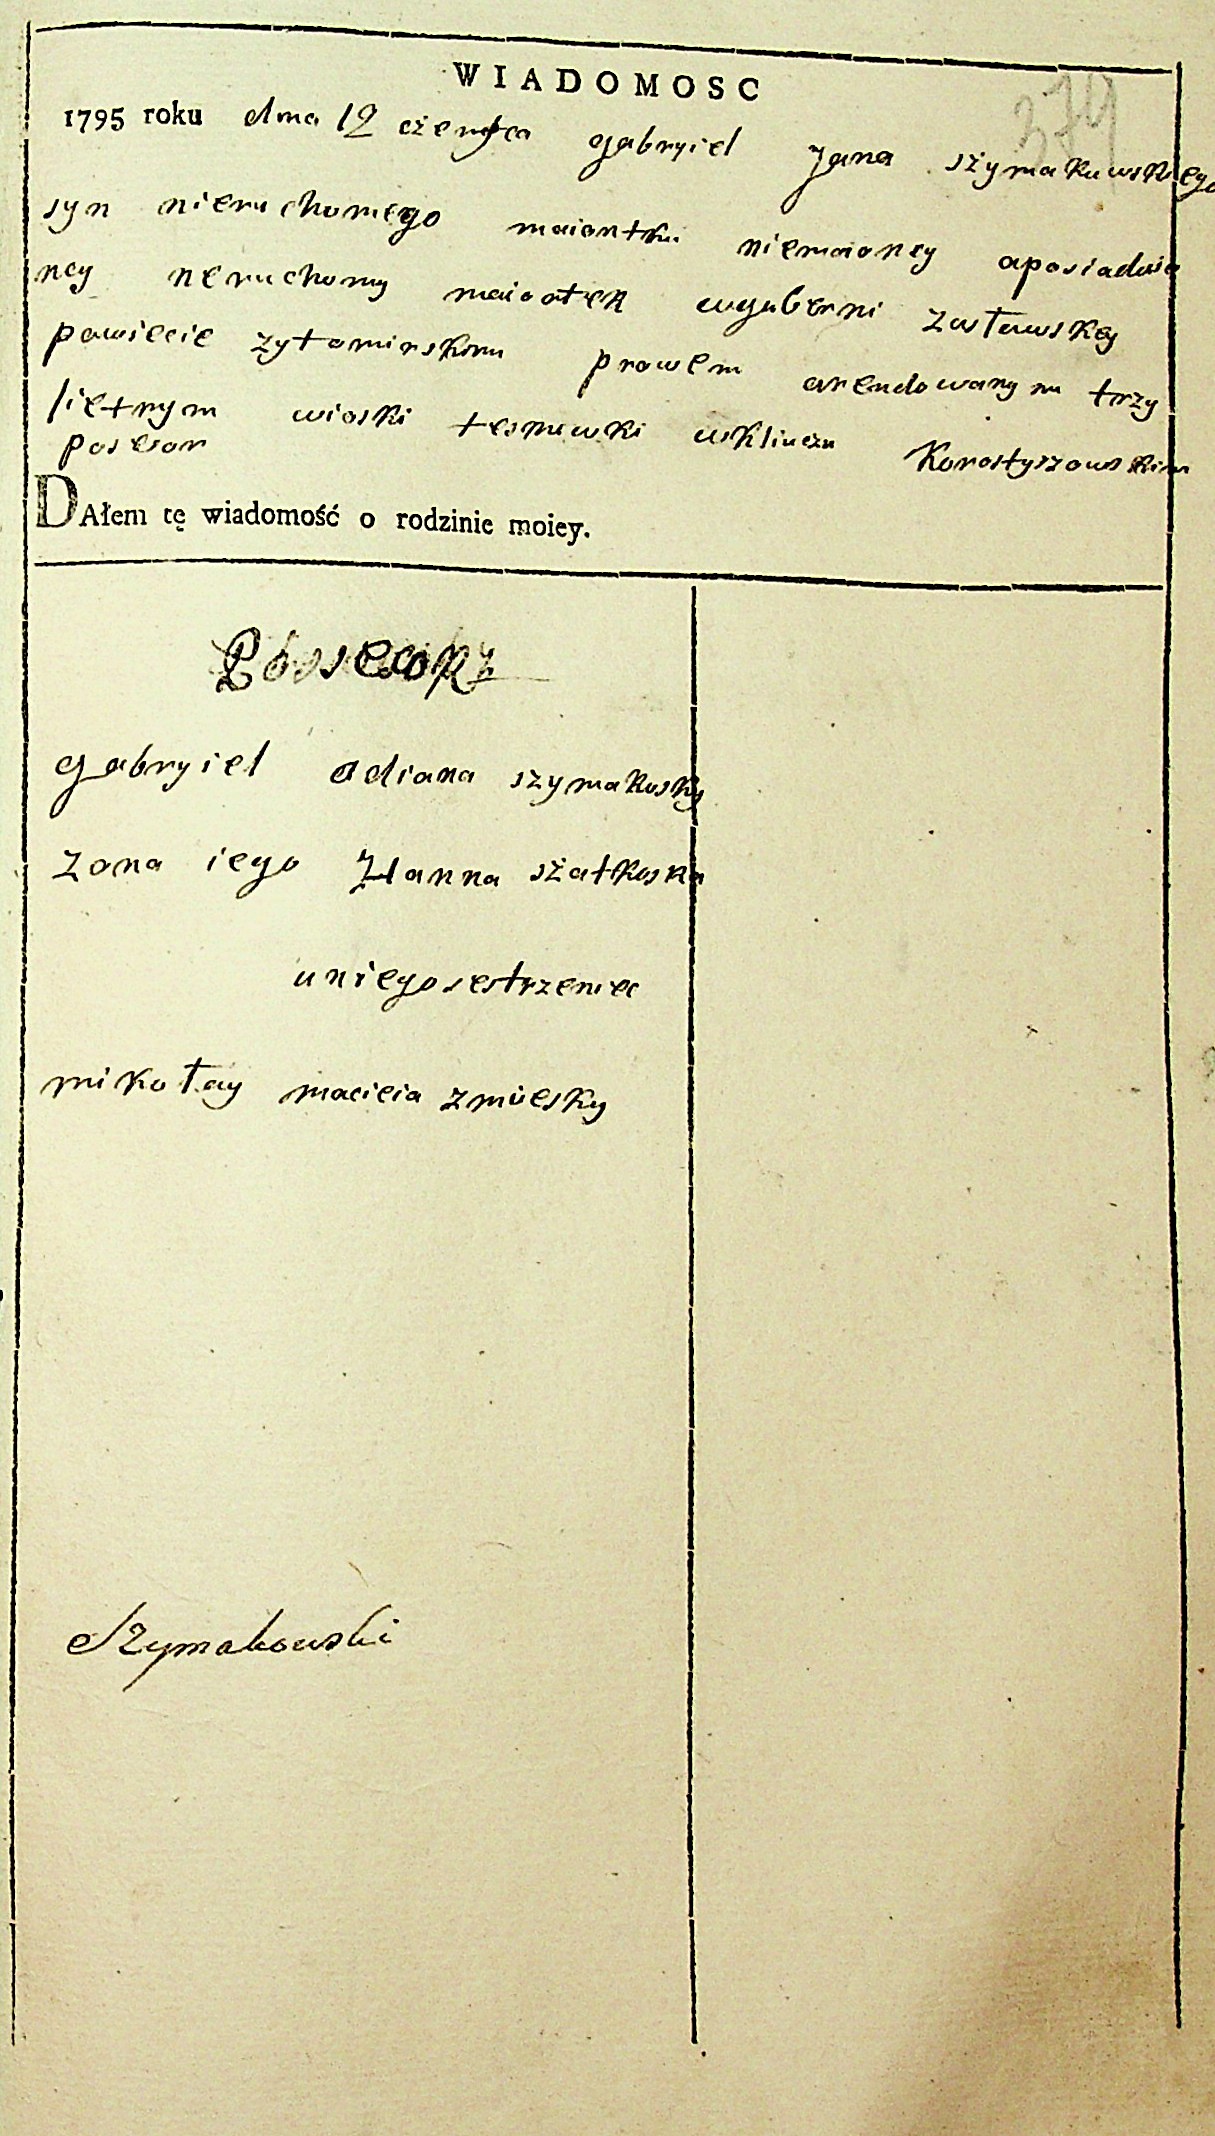 WIADOMOSC
374
1795 roku dnia 12 czerwca gabryiel Jana szymakuwskiego
syn nieruchomego maiontku niemaioncy aposiadaio
ncy neruchomy maiontek wguberni zasławskey
powiecie zytomirskim prawem arendowanym trzy
lietnym wioski tesnuwki wkliuczu Korostyszowskim
posesor
DAłem tę wiadomość o rodzinie moiey.
Possesorz
gabryiel adiana szymakosky
zona iego Hanna szatkoska
uniego sestrzeniec
mikołay macieia zmiesky
Szymakowski